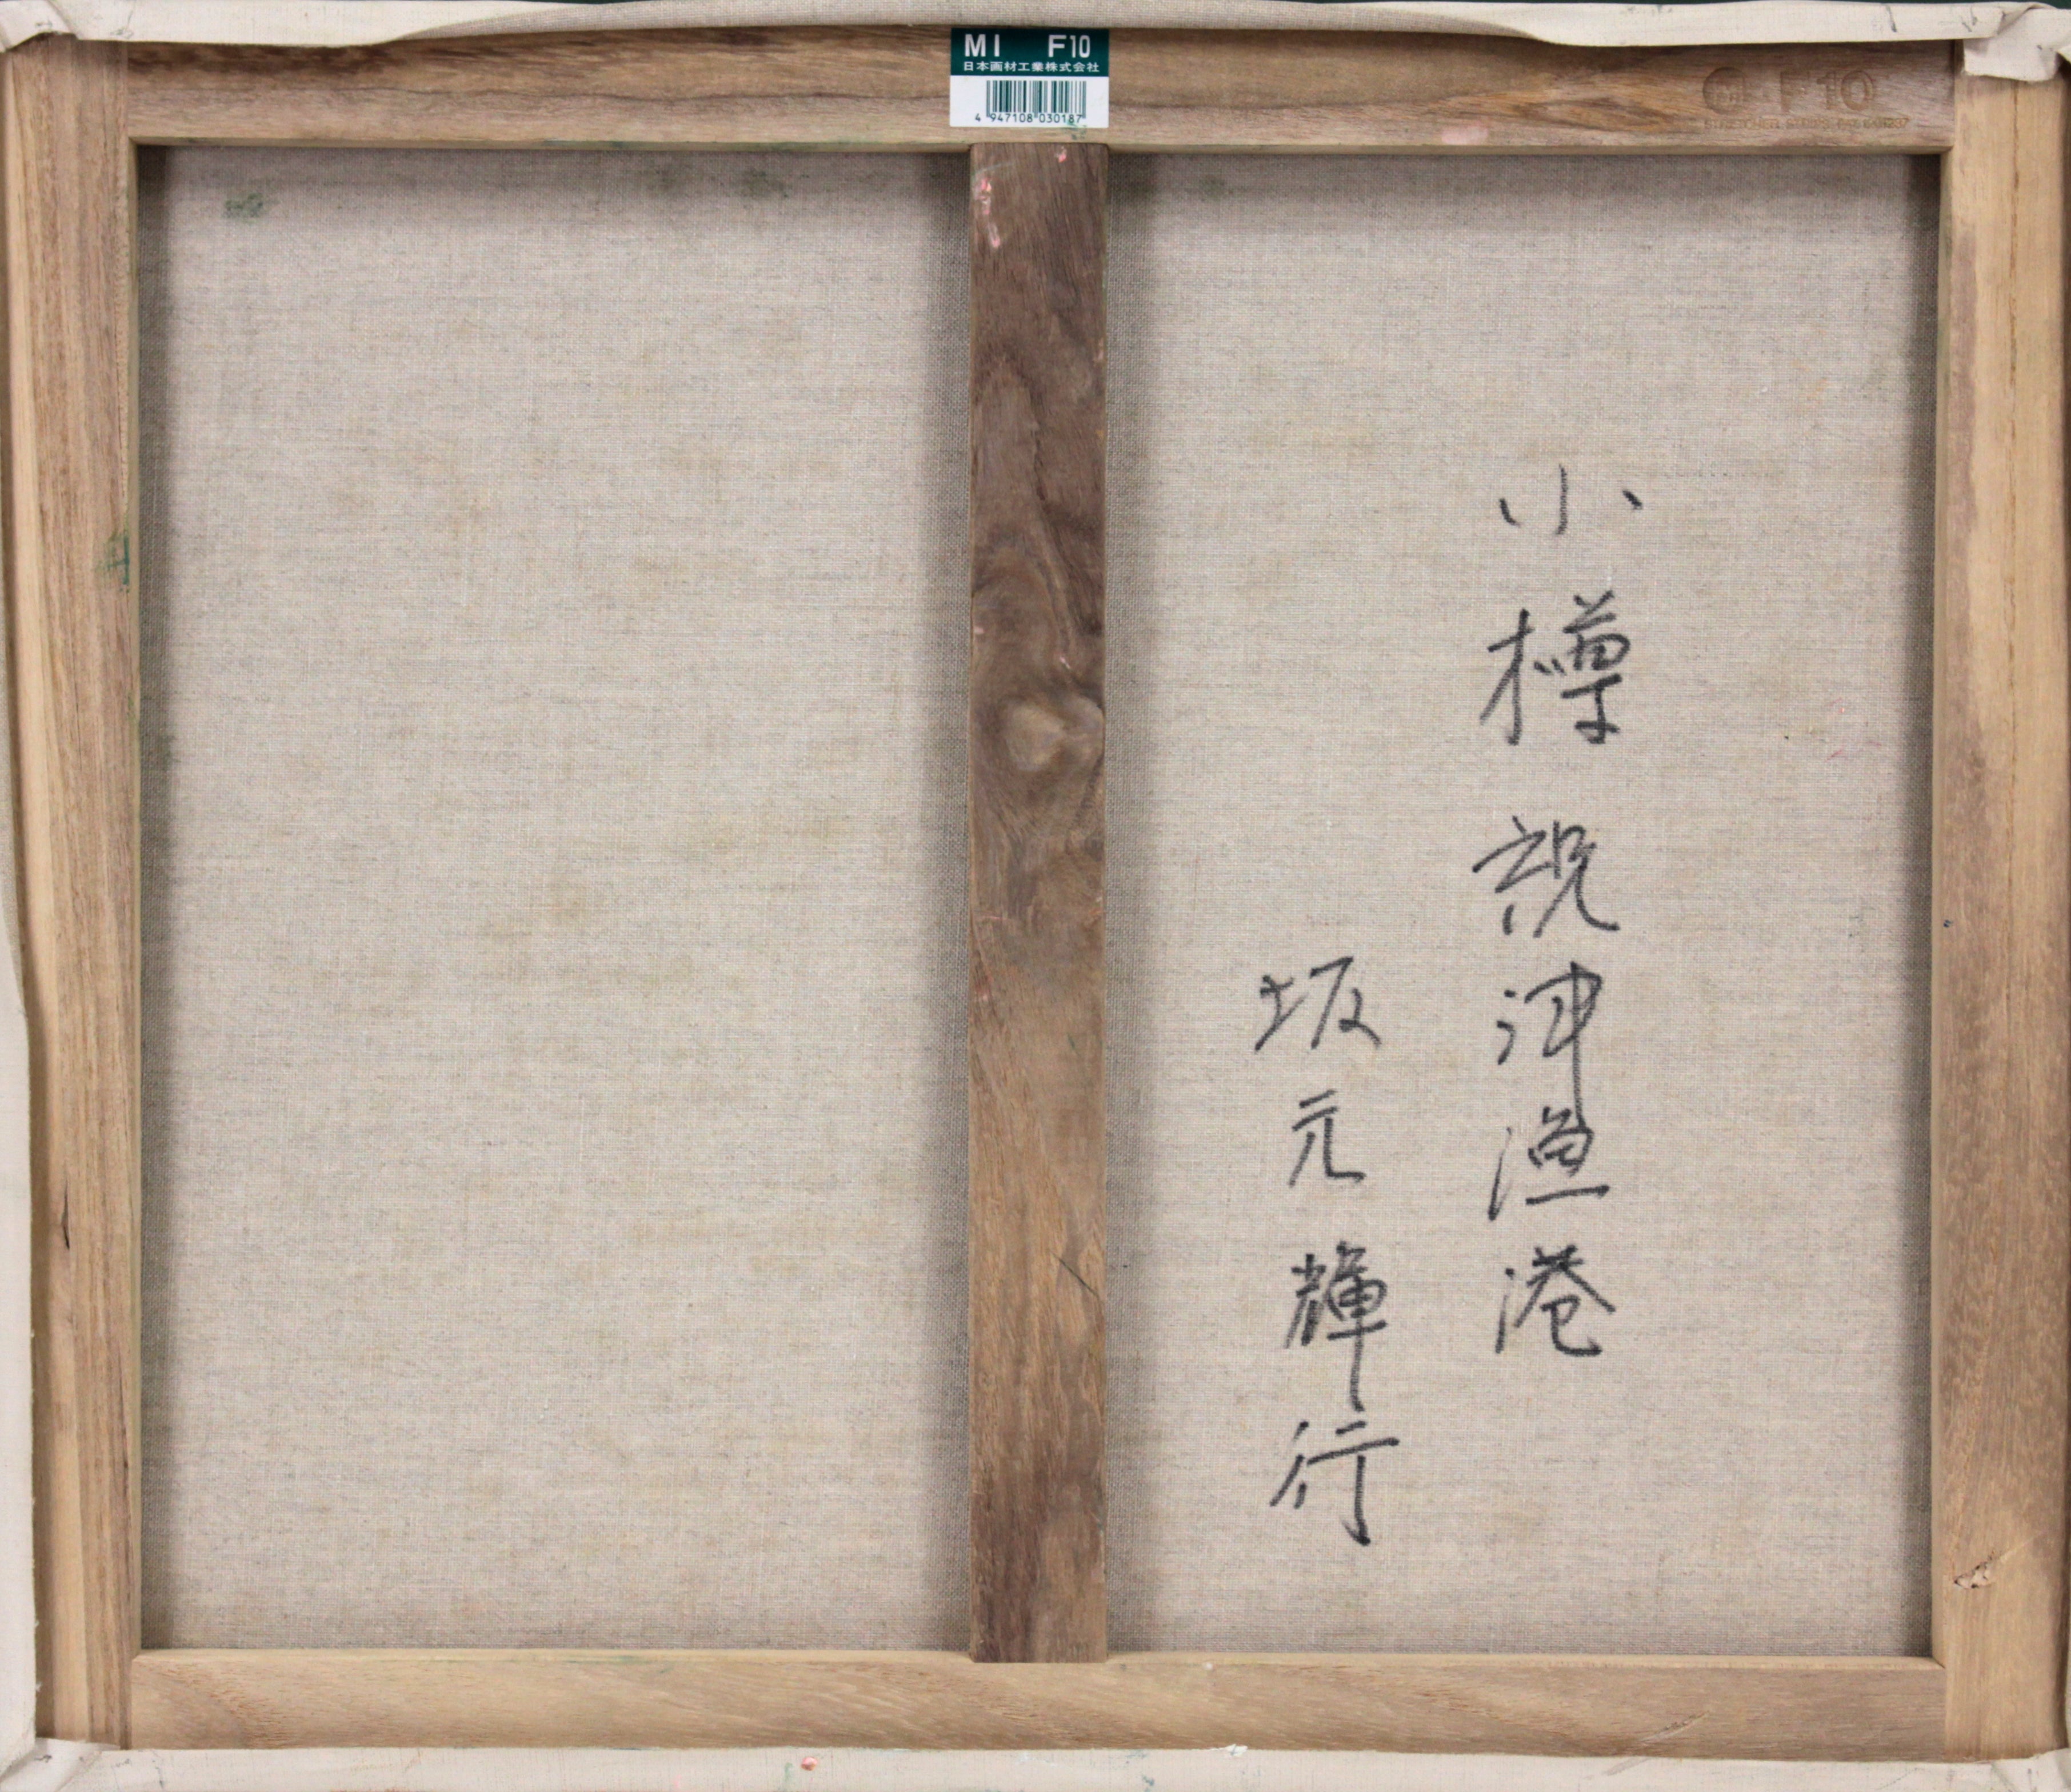 MI F10
日本画材工業株式会社
4 947108 030187
F10
小樽 祝津漁港
坂元輝行